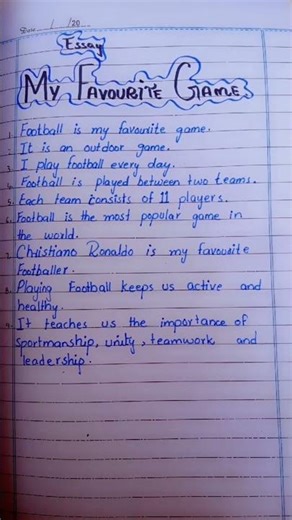 Date __/__/20__
Essay
My Favourite Game
1. Football is my favourite game.
2. It is an outdoor game.
3. I play football every day.
4. Football is played between two teams.
5. Each team consists of 11 players.
6. Football is the most popular game in
the world.
7. Christiano Ronaldo is my favourite
Footballer.
8. Playing Football keeps us active and
healthy.
9. It teaches us the importance of
sportmanship, unity, teamwork and
leadership.